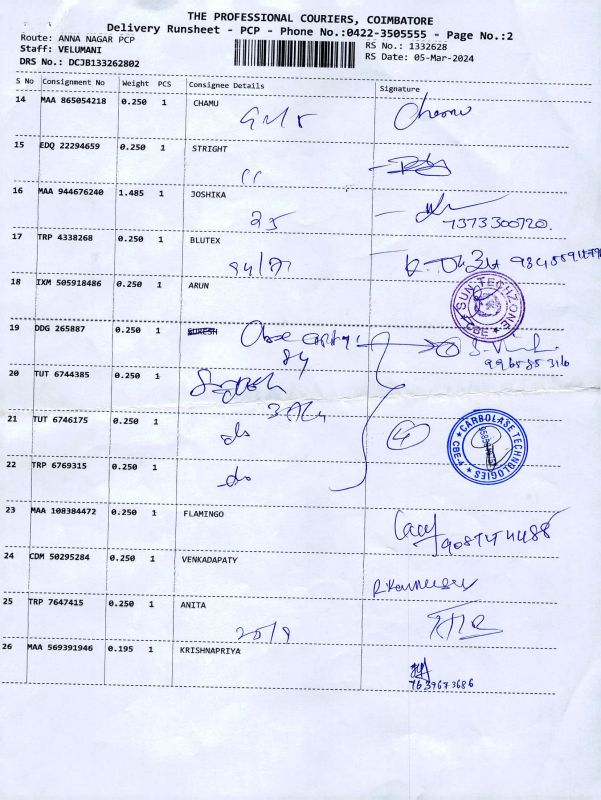 THE PROFESSIONAL COURIERS, COIMBATORE
Delivery Runsheet - PCP - Phone No.:0422-3505555 - Page No.:2
Route: ANNA NAGAR PCP
RS No.: 1332628
Staff: VELUMANI
RS Date: 05-Mar-2024
DRS No.: DCJB133262802
S No Consignment No Weight PCS Consignee Details Signature
14 MAA 865054218 0.250 1 CHAMU
15 EDQ 22294659 0.250 1 STRIGHT
16 MAA 944676240 1.485 1 JOSHIKA
25 7373300720.
17 TRP 4338268 0.250 1 BLUTEX
94/77
18 IXM 505918486 0.250 1 ARUN
SUN TECHZONE CBE
19 DDG 265887 0.250 1 SURESH
84
9965835316
20 TUT 6744385 0.250 1
21 TUT 6746175 0.250 1
do
4
CARBOLASE TECHNOLOGIES CBE-4
22 TRP 6769315 0.250 1
do
23 MAA 108384472 0.250 1 FLAMINGO
24 CDM 50295284 0.250 1 VENKADAPATY
25 TRP 7647415 0.250 1 ANITA
20/9
26 MAA 569391946 0.195 1 KRISHNAPRIYA
7639673686